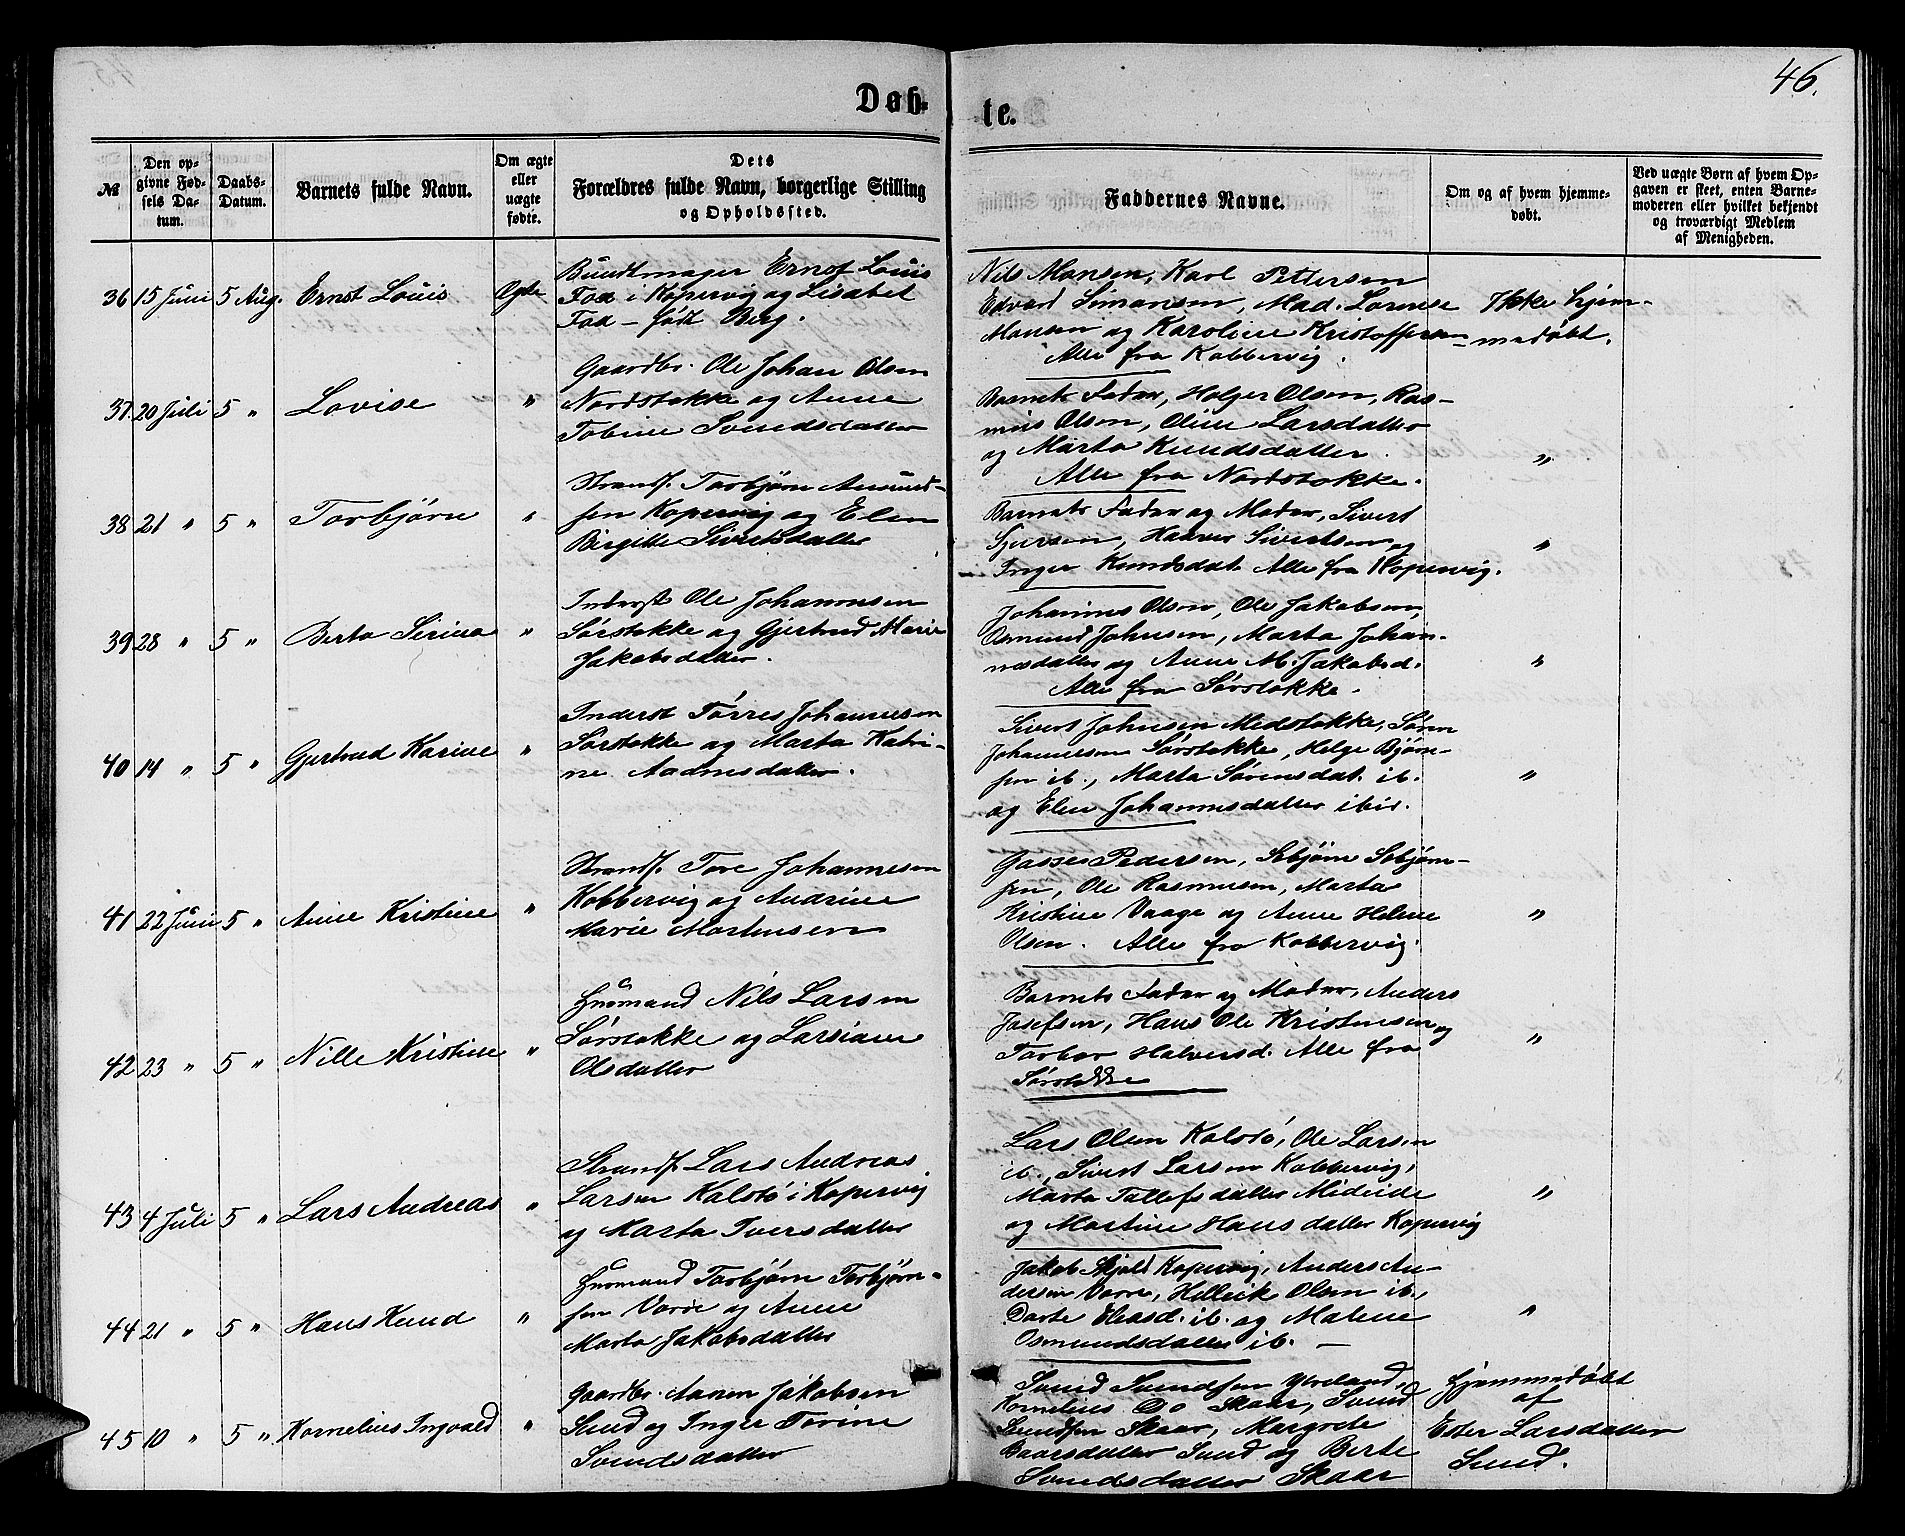 46.
Døb-
te.
№
Den op-
givne Fød-
sels Da-
tum.
Daabs-
Datum.
Barnets fulde Navn.
Om ægte
eller
uægte
fødte.
Dets
Forældres fulde Navn, borgerlige Stilling
og Opholdssted.
Faddernes Navne.
Om og af hvem hjemme-
døbt.
Ved uægte Børn af hvem Op-
gaven er skeet, enten Barne-
moderen eller hvilket bekjendt
og troværdigt Medlem
af Menigheden.
36 15 Juni 5 Aug. Ernst Louis Ægte
Bundtmager Ernst Louis
Fox i Kopervig og Lisabet
Fox - født Berg.
Nils Monsen, Karl Pettersen
Edvard Simonsen, Mad. Lorense
Monsen og Karoline Kristoffersen
Alle fra Kobbervig.
Ikke hjem-
medøbt.
37 20 Juli 5 " Lovise "
Gaardbr. Ole Johan Olsen
Nordstokke og Anne
Tobine Svendsdatter
Barnets Fader, Holger Olsen, Ras-
mus Olsen, Oline Larsdatter
og Marta Knudsdatter.
Alle fra Nordstokke.
"
38 21 " 5 " Torbjørn "
Strandf. Torbjørn Amund-
sen Kopervig og Elen
Birgitte Sivertsdatter
Barnets Fader og Moder, Sivert
Sjursen, Haaver Sivertsen og
Inger Knudsdat. Alle fra Kopervig.
"
39 28 " 5 " Berta Sirina "
Inderst Ole Johannesen
Sørstokke og Gjertrud Marie
Jakobsdatter.
Johannes Olsen, Ole Jakobsen,
Osmund Johnsen, Marta Johan-
nesdatter og Anne M. Jakobsd.
Alle fra Sørstokke.
"
40 14 " 5 " Gjertrud Karine "
Inderst Tørres Johannesen
Sørstokke og Marta Katri-
ne Aadnesdatter.
Sivert Johnsen Midstokke, Søren
Johannesen Sørstokke, Helge Bjørn-
sen ib., Marta Sørensdat. ib.
og Elen Johannesdatter ibid.
"
41 22 Juni 5 " Anne Kristine "
Strandf. Tore Johannesen
Kobbervig og Andrine
Marie Mortensen
Gasses Pedersen, Sebjørn Sebjørn-
sen, Ole Rasmusen, Marta
Kristine Vaage og Anne Helene
Olsen. Alle fra Kobbervig.
"
42 23 " 5 " Nille Kristine "
Husmand Nils Larsen
Sørstokke og Larsiane
Olsdatter
Barnets Fader og Moder, Anders
Josefsen, Hans Ole Kristensen og
Torbor Halversd. Alle fra
Sørstokke
"
43 4 Juli 5 " Lars Andreas "
Strandf. Lars Andreas
Larsen Kalstø i Kopervig
og Marta Iversdatter
Lars Olsen Kalstø, Ole Larsen
ib., Sivert Larsen Kobbervig,
Marta Tollefsdatter Mideide
og Martine Hansdatter Kopervig
"
44 21 " 5 " Hans Knud "
Husmand Torbjørn Torbjørn-
sen Vorre og Anne
Marta Jakobsdatter
Jakob Skjold Kopervig, Anders An-
dersen Vorre, Hellick Olsen ib.,
Dorte Eliasd. ib. og Malene
Osmundsdatter ib. -
"
45 10 " 5 " Kornelius Ingvald "
Gaardbr. Aanen Jakobsen
Sund og Inger Torine
Svendsdatter
Svend Svendsen Ytreland,
Kornelius Do Skaar, Svend
Svendsen Skaar, Margrete
Baarsdatter Sund og Berte
Svendsdatter Skaar
Hjemmedøbt
af
Ester Larsdatter
Sund.